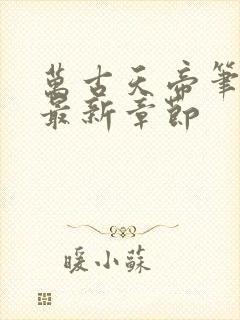 萬古天帝筆
最新章節
暖小蘇